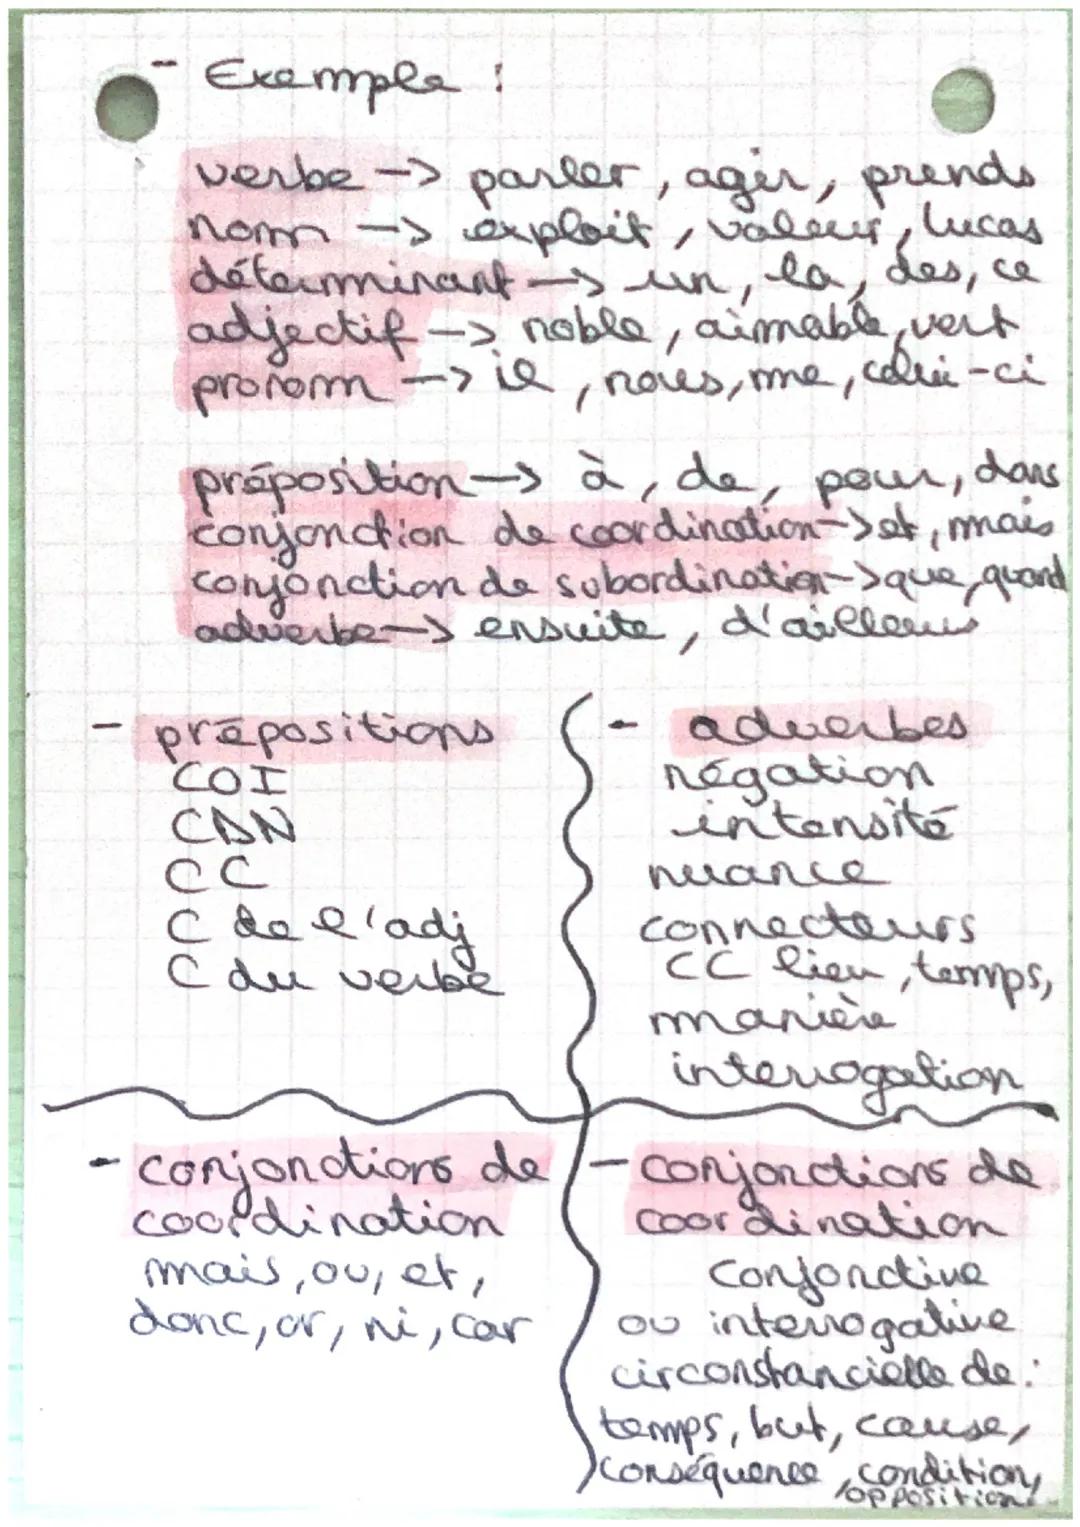 - Exemple :
verbe -> parler, agir, prends
nom -> exploit, valeur, lucas
déterminant -> un, la, des, ce
adjectif -> noble, aimable, vert
pronom -> il, nous, me, celui-ci
préposition -> à, de, pour, dans
conjonction de coordination -> et, mais
conjonction de subordination -> que, quand
adverbe -> ensuite, d'ailleurs
- prépositions
COI
CDN
CC
C de l'adj
C du verbe
- adverbes
négation
intensité
nuance
connecteurs
CC lieu, temps,
manière
interrogation
- conjonctions de
coordination
mais, ou, et,
donc, or, ni, car
- conjonctions de
coordination
conjonctive
ou interrogative
circonstancielle de :
temps, but, cause,
conséquence, condition,
opposition.